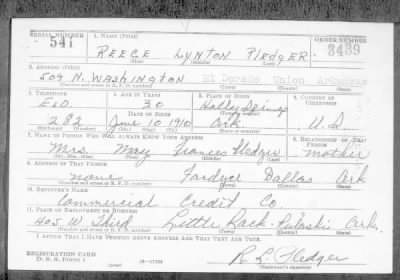 SERIAL NUMBER 1. NAME (Print) ORDER NUMBER
541 REECE LYNTON PLEDGER 3439
(First) (Middle) (Last)
2. ADDRESS (Print)
509 N. WASHINGTON El Dorado Union Arkansas
(Number and street or R. F. D. number) (Town) (County) (State)
3. TELEPHONE 4. AGE IN YEARS 5. PLACE OF BIRTH 6. COUNTRY OF CITIZENSHIP
ElD. 30 Holly Springs
DATE OF BIRTH
282 June 10 1910 Ark. U.S.
(Exchange) (Number) (Mo.) (Day) (Yr.) (State or country)
7. NAME OF PERSON WHO WILL ALWAYS KNOW YOUR ADDRESS 8. RELATIONSHIP OF THAT PERSON
Mrs. May Frances Pledger mother
(Mr., Mrs., Miss) (First) (Middle) (Last)
9. ADDRESS OF THAT PERSON
none Fordyce Dallas Ark
(Number and street or R. F. D. number) (Town) (County) (State)
10. EMPLOYER'S NAME
Commercial Credit Co.
11. PLACE OF EMPLOYMENT OR BUSINESS
405 W. Third Little Rock Pulaski Ark.
(Number and street or R. F. D. number) (Town) (County) (State)
I AFFIRM THAT I HAVE VERIFIED ABOVE ANSWERS AND THAT THEY ARE TRUE.
REGISTRATION CARD
D. S. S. FORM 1 (over) 16—17105 R. L. Pledger
(Registrant's signature)